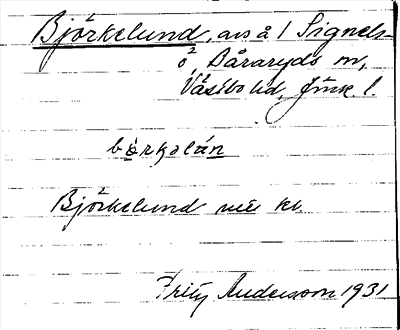 Björkelund, avs å 1 Signels-
ö, Dåraryds sn,
Västbo hd, Jönk l.
børkolán
Björkelund
Fritz Andersson 1931